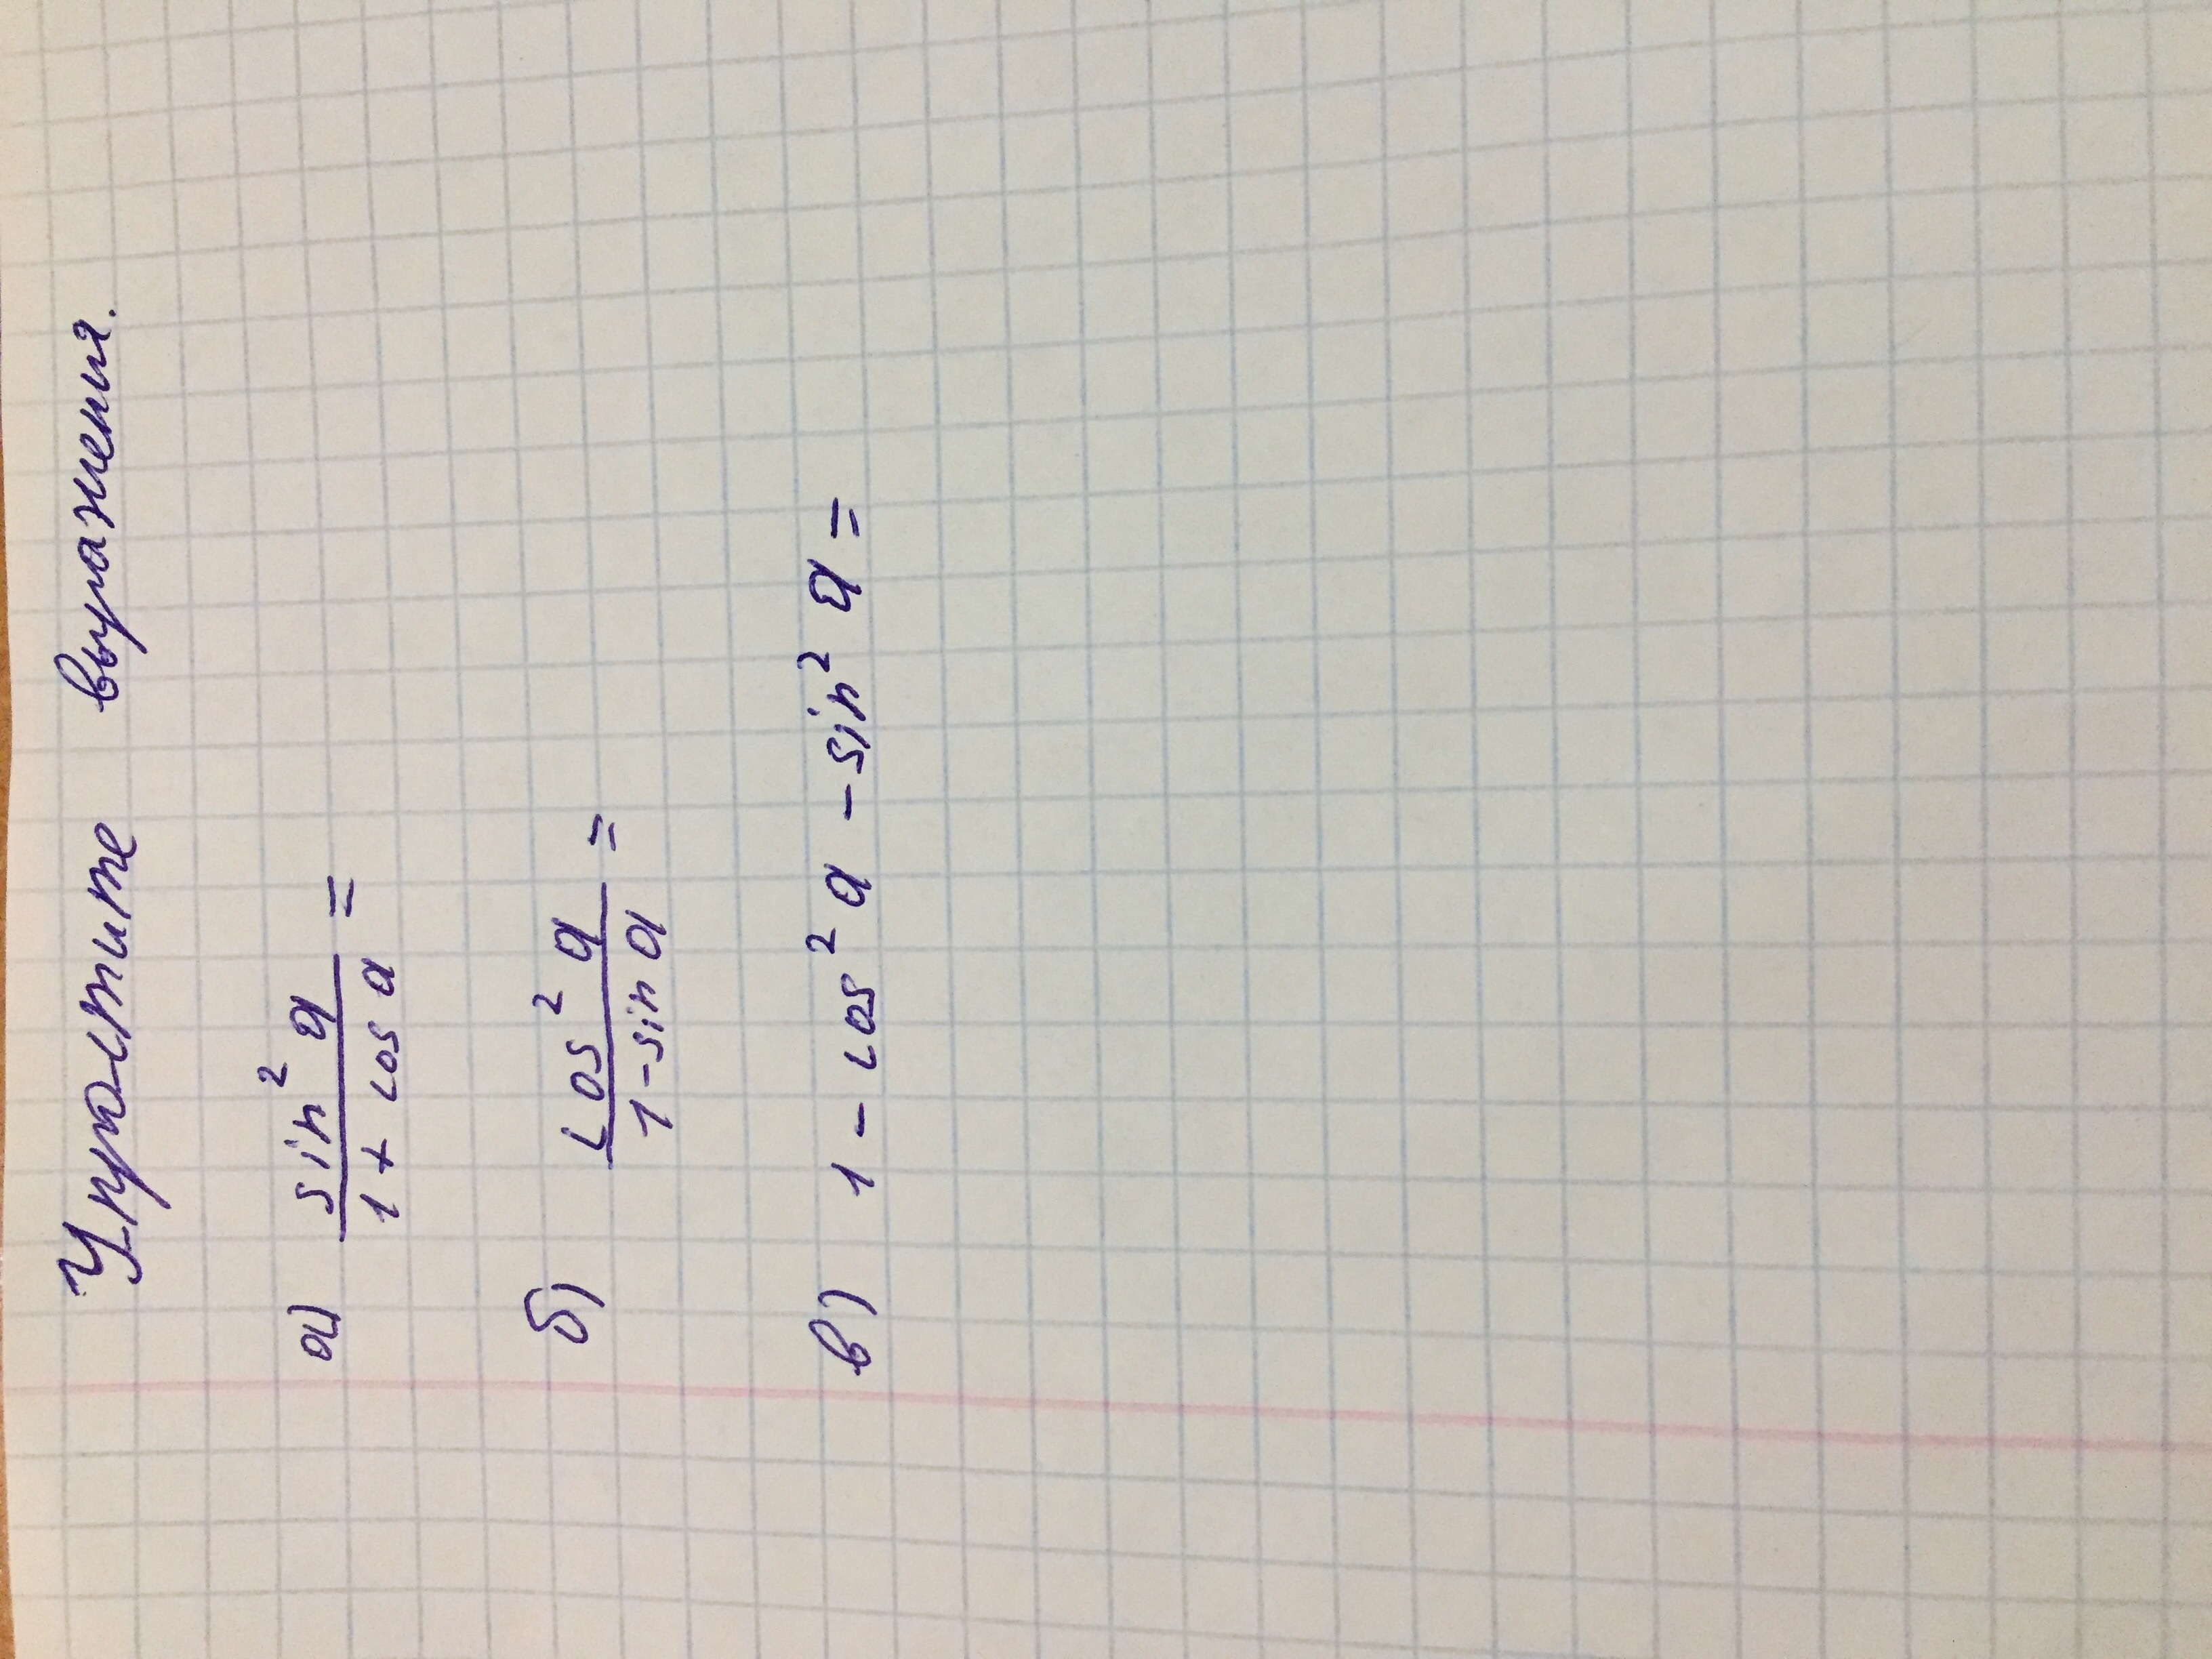 Упростите выражения.
а) sin² a / 1 + cos a =
б) cos² a / 1 - sin a =
в) 1 - cos² a - sin² a =